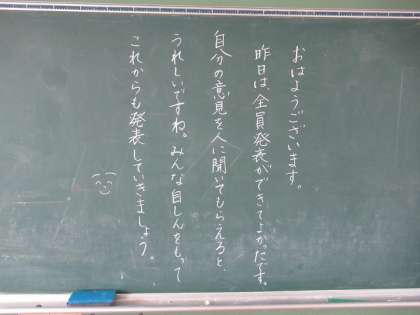 おはようございます。
昨日は、全員発表ができてよかったです。
自分の意見を人に聞いてもらえると、
うれしいですね。みんな自しんをもって
これからも発表していきましょう。